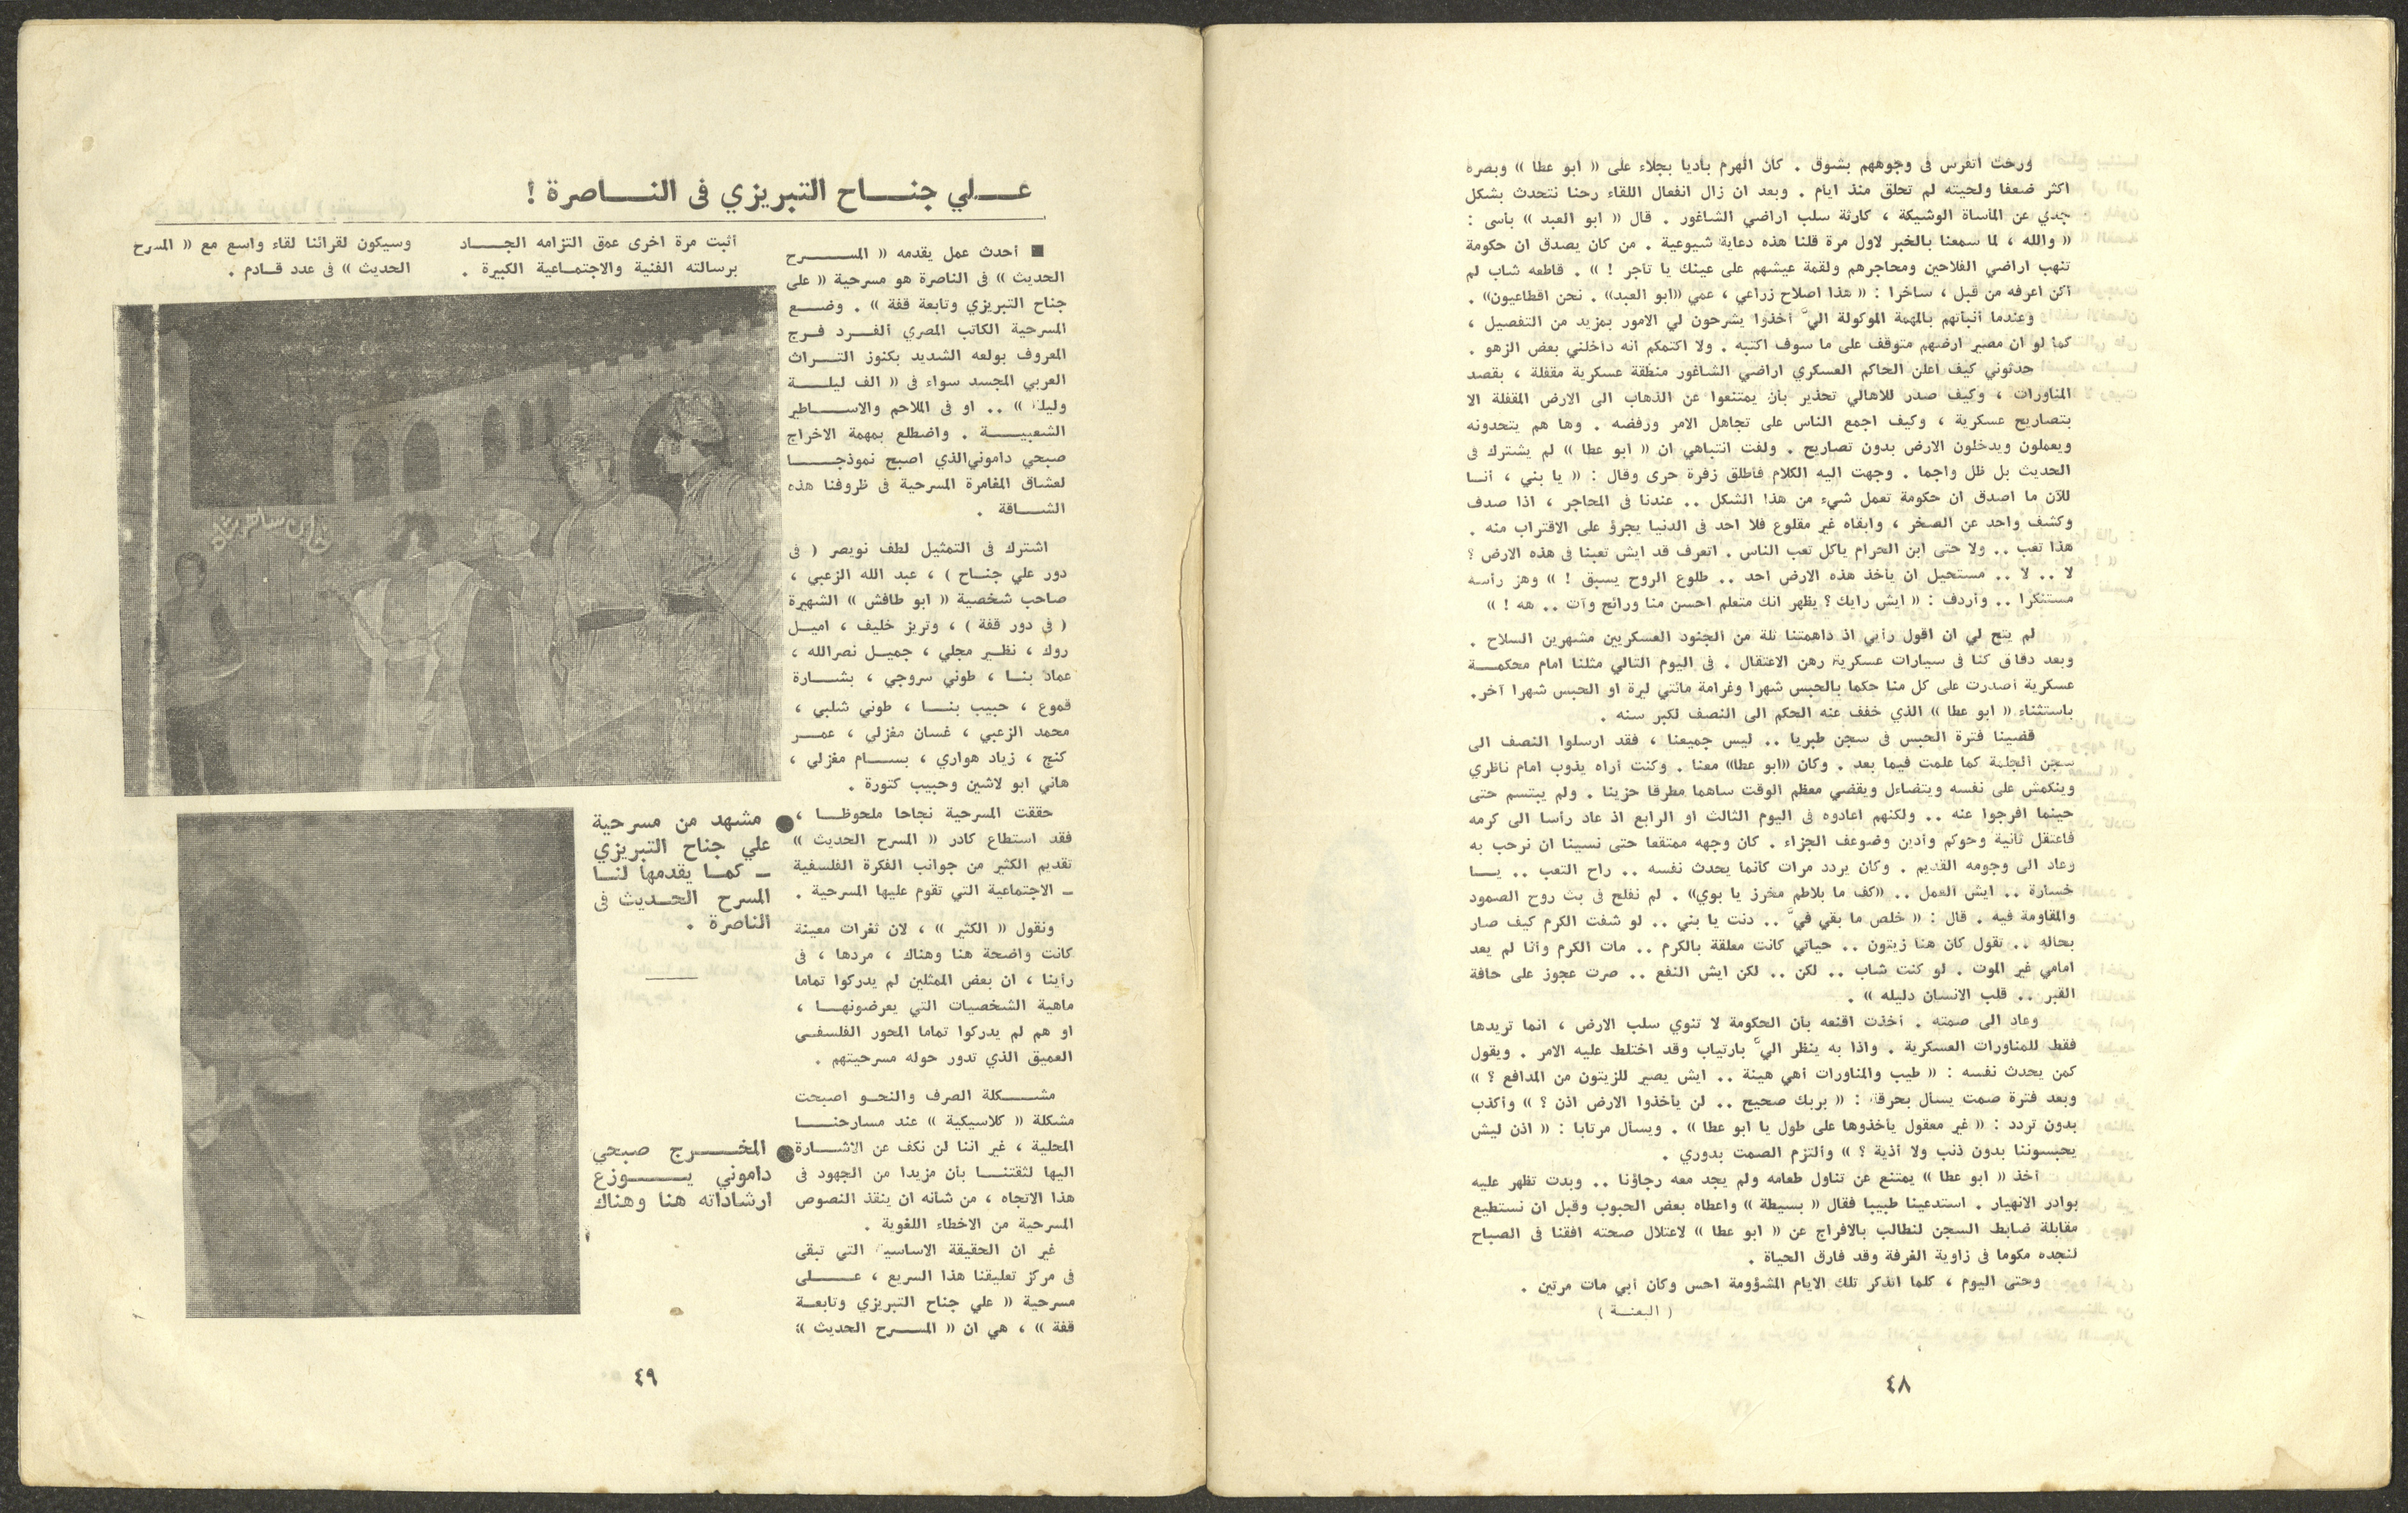 ورحت اتفرس فى وجوههم بشوق . كان الهرم باديا بجلاء على « ابو عطا » وبصره
اكثر ضعفا ولحيته لم تحلق منذ ايام . وبعد ان زال انفعال اللقاء رحنا نتحدث بشكل
جدي عن المأساة الوشيكة ، كارثة سلب اراضي الشاغور . قال « ابو العبد » بأسى :
« والله ، لما سمعنا بالخبر لاول مرة قلنا هذه دعاية شيوعية . من كان يصدق ان حكومة
تنهب اراضي الفلاحين ومحاجرهم ولقمة عيشهم على عينك يا تاجر ! » . قاطعه شاب لم
أكن اعرفه من قبل ، ساخرا : « هذا اصلاح زراعي ، عمي «ابو العبد» . نحن اقطاعيون» .
وعندما أنبأتهم بالمهمة الموكولة اليّ أخذوا يشرحون لي الامور بمزيد من التفصيل ،
كما لو ان مصير ارضهم متوقف على ما سوف اكتبه . ولا اكتمكم انه داخلني بعض الزهو .
حدثوني كيف اعلن الحاكم العسكري اراضي الشاغور منطقة عسكرية مقفلة ، بقصد
المناورات ، وكيف صدر للاهالي تحذير بأن يمتنعوا عن الذهاب الى الارض المقفلة الا
بتصاريح عسكرية ، وكيف اجمع الناس على تجاهل الامر ورفضه . وها هم يتحدونه
ويعملون ويدخلون الارض بدون تصاريح . ولفت انتباهي ان « ابو عطا » لم يشترك فى
الحديث بل ظل واجما . وجهت اليه الكلام فأطلق زفرة حرى وقال : « يا بني ، أنـا
للآن ما اصدق ان حكومة تعمل شيء من هذا الشكل .. عندنا فى المحاجر ، اذا صدف
وكشف واحد عن الصخر ، وابقاه غير مقلوع فلا احد فى الدنيا يجرؤ على الاقتراب منه .
هذا تعب .. ولا حتى ابن الحرام ياكل تعب الناس . اتعرف قد ايش تعبنا فى هذه الارض ؟
لا .. لا .. مستحيل ان يأخذ هذه الارض احد .. طلوع الروح يسبق ! » وهز رأسه
مستنكرا .. وأردف : « ايش رايك ؟ يظهر انك متعلم احسن منا ورائح وآت .. هه ! »
لم يتح لي ان اقول رأيي اذ داهمتنا ثلة من الجنود العسكريين مشهرين السلاح .
وبعد دقائق كنا فى سيارات عسكرية رهن الاعتقال . فى اليوم التالي مثلنا امام محكمـــة
عسكرية أصدرت على كل منا حكما بالحبس شهرا وغرامة مائتي ليرة او الحبس شهرا آخر.
باستثناء « ابو عطا » الذي خفف عنه الحكم الى النصف لكبر سنه .
قضينا فترة الحبس فى سجن طبريا .. ليس جميعنا ، فقد ارسلوا النصف الى
سجن الجلمة كما علمت فيما بعد . وكان «ابو عطا» معنا . وكنت أراه يذوب امام ناظري
وينكمش على نفسه ويتضاءل ويقضي معظم الوقت ساهما مطرقا حزينا . ولم يبتسم حتى
حينما افرجوا عنه .. ولكنهم اعادوه فى اليوم الثالث او الرابع اذ عاد رأسا الى كرمه
فاعتقل ثانية وحوكم وأدين وضوعف الجزاء . كان وجهه ممتقعا حتى نسينا ان نرحب به
وعاد الى وجومه القديم . وكان يردد مرات كأنما يحدث نفسه .. راح التعب .. يـــا
خسارة .. ايش العمل .. «كف ما بلاطم مخرز يا بوي» . لم نفلح فى بث روح الصمود
والمقاومة فيه . قال : « خلص ما بقي فيّ .. دنت يا بني .. لو شفت الكرم كيف صار
بحاله .. تقول كان هنا زيتون .. حياتي كانت معلقة بالكرم .. مات الكرم وأنا لم يعد
امامي غير الموت . لو كنت شاب .. لكن .. لكن ايش النفع .. صرت عجوز على حافة
القبر .. قلب الانسان دليله » .
وعاد الى صمته . أخذت اقنعه بأن الحكومة لا تنوي سلب الارض ، انما تريدها
فقط للمناورات العسكرية . واذا به ينظر اليّ بارتياب وقد اختلط عليه الامر . ويقول
كمن يحدث نفسه : « طيب والمناورات أهي هينة .. ايش يصير للزيتون من المدافع ؟ »
وبعد فترة صمت يسأل بحرقة : « بربك صحيح .. لن يأخذوا الارض اذن ؟ » وأكذب
بدون تردد : « غير معقول يأخذوها على طول يا ابو عطا » . ويسأل مرتابا : « اذن ليش
يحبسوننا بدون ذنب ولا أذية ؟ » وألتزم الصمت بدوري .
أخذ « ابو عطا » يمتنع عن تناول طعامه ولم يجد معه رجاؤنا .. وبدت تظهر عليه
بوادر الانهيار . استدعينا طبيبا فقال « بسيطة » واعطاه بعض الحبوب وقبل ان نستطيع
مقابلة ضابط السجن لنطالب بالافراج عن « ابو عطا » لاعتلال صحته افقنا فى الصباح
لنجده مكوما فى زاوية الغرفة وقد فارق الحياة .
وحتى اليوم ، كلما اتذكر تلك الايام المشؤومة احس وكأن أبي مات مرتين .
( البعنــة )
٤٨
عــلي جنــاح التبريزي فى النــاصرة !
■ أحدث عمل يقدمه « المســـرح
الحديث » فى الناصرة هو مسرحية « على
جناح التبريزي وتابعة قفة » . وضــع
المسرحية الكاتب المصري ألفــرد فــرج
المعروف بولعه الشديد بكنوز التــراث
العربي المجسد سواء فى « الف ليلــة
وليلة » .. او فى الملاحم والاســاطير
الشعبيـــة . واضطلع بمهمة الاخراج
صبحي داموني الذي اصبح نموذجــا
لعشاق المغامرة المسرحية فى ظروفنا هذه
الشــاقة .
اشترك فى التمثيل لطف نويصر ( فى
دور علي جنــاح ) ، عبد الله الزعبي ،
صاحب شخصية « ابو طافش » الشهيرة
( فى دور قفة ) ، وتريز خليف ، اميـل
روك ، نظـير مجلي ، جميـل نصرالله ،
عماد بنــا ، طوني سروجي ، بشــارة
قموع ، حبيب بنــا ، طوني شلبي ،
محمد الزعبي ، غسان مغزلي ، عمــر
كنج ، زياد هواري ، بســام مغزلي ،
هاني ابو لاشين وحبيب كتورة .
حققت المسرحية نجاحا ملحوظــا ،
فقد استطاع كادر « المسرح الحديث »
تقديم الكثير من جوانب الفكرة الفلسفية
ـ الاجتماعية التي تقوم عليها المسرحية .
ونقول « الكثير » ، لان ثغرات معينة
كانت واضحة هنا وهناك ، مردها ، فى
رأينا ، ان بعض الممثلين لم يدركوا تماما
ماهية الشخصيات التي يعرضونهــا ،
او هم لم يدركوا تماما المحور الفلسفــي
العميق الذي تدور حوله مسرحيتهم .
مشـــكلة الصرف والنحـو اصبحت
مشكلة « كلاسيكية » عند مسارحنـــا
المحلية ، غير اننا لن نكف عن الاشــارة
اليها لثقتنـــا بأن مزيدا من الجهود فى
هذا الاتجاه ، من شأنه ان ينقذ النصوص
المسرحية من الاخطاء اللغوية .
غير ان الحقيقة الاساسية التي تبقى
فى مركز تعليقنا هذا السريع ، عــلى
مسرحية « علي جناح التبريزي وتابعــة
قفة » ، هي ان « المســـرح الحديث »
أثبت مرة اخرى عمق التزامه الجـــاد
برسالته الفنية والاجتمــاعية الكبيرة .
وسيكون لقرائنا لقاء واسع مع « المسرح
الحديث » فى عدد قــادم .
● مشهد من مسرحية
علي جناح التبريزي
ـ كمــا يقدمها لنــا
المسرح الحــديث فى
الناصرة .
● المخـــرج صبحي
داموني يــــوزع
ارشاداته هنا وهناك
٤٩